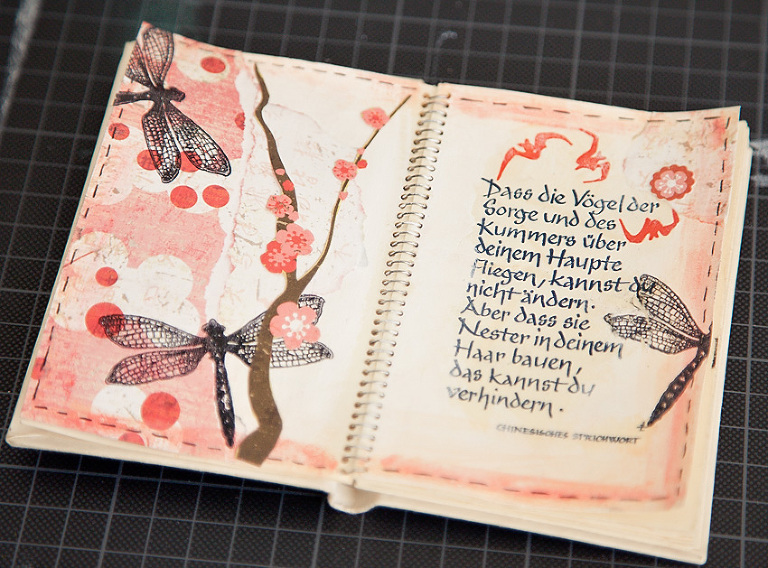 Dass die Vögel der
Sorge und des
Kummers über
deinem Haupte
fliegen, kannst du
nicht ändern.
Aber dass sie
Nester in deinem
Haar bauen,
das kannst du
verhindern.
CHINESISCHES SPRICHWORT